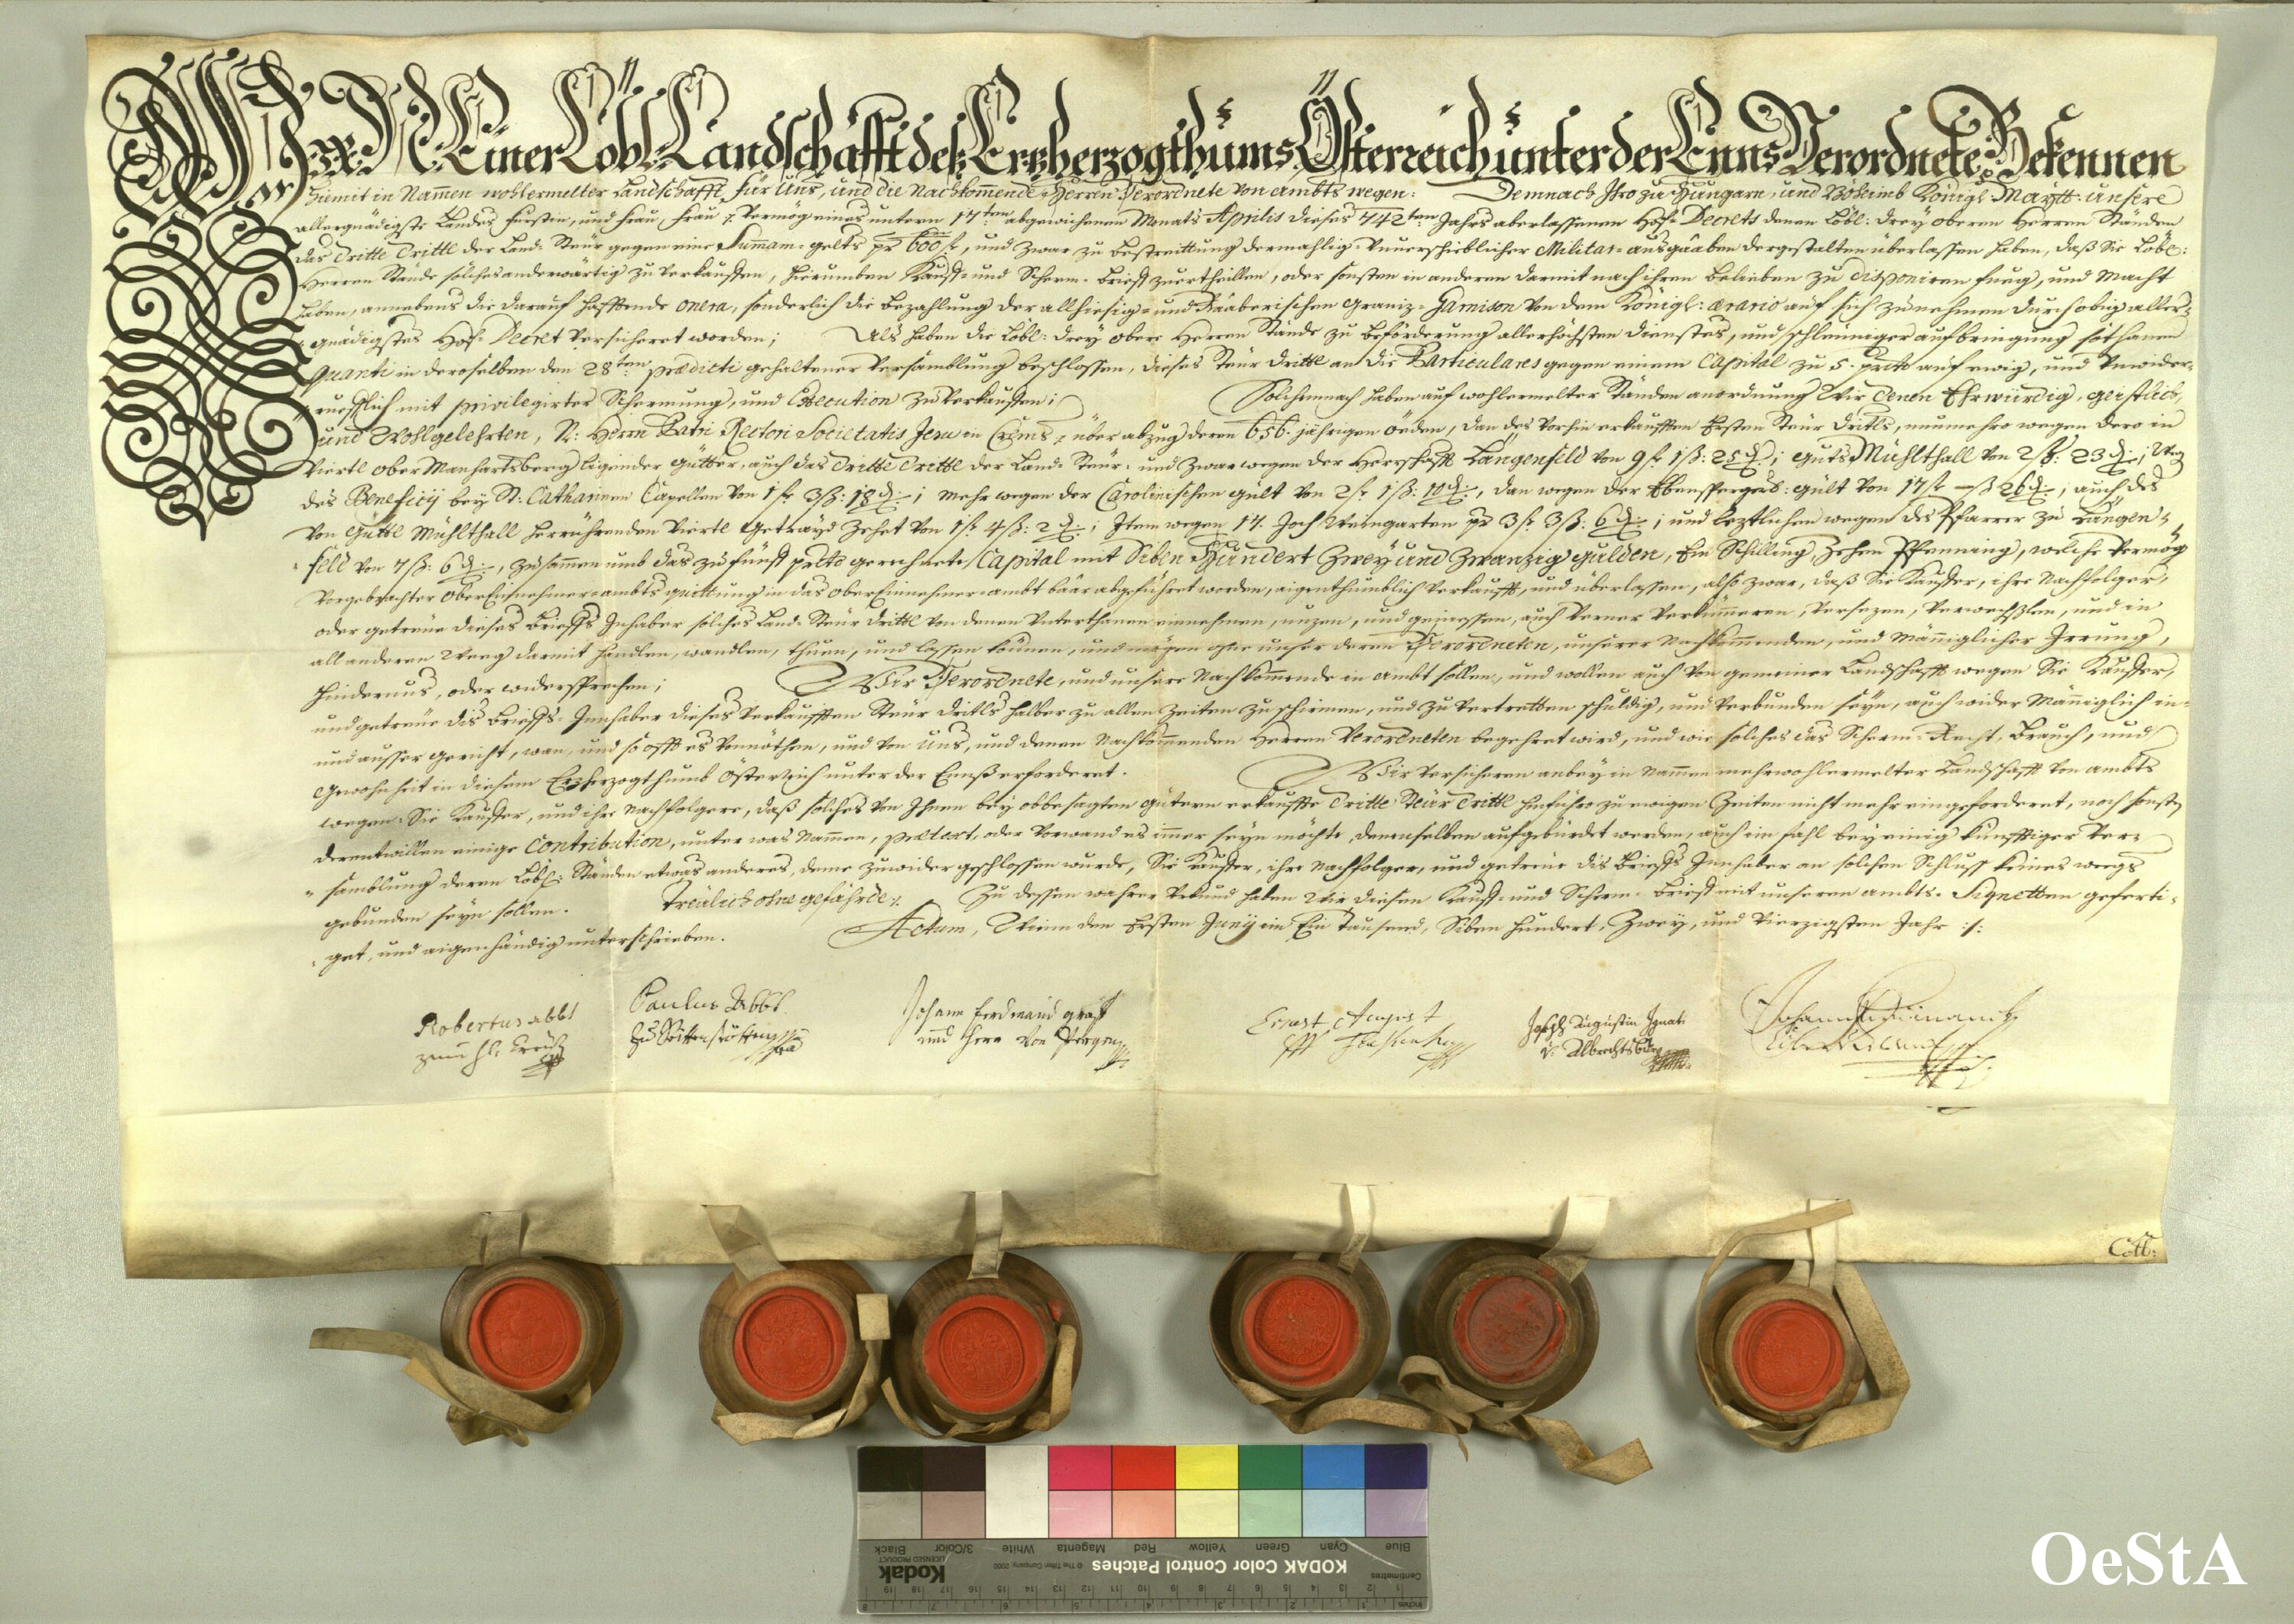 Wür N: N: Einer Löbl: Landschafft des Ertzherzogthums Österreich unter der Enns Verordnete: Bekennen
hiemit in Nammen wohlermelter Landschafft, für Uns, und die Nachkommende Herren Verordnete von ambts wegen: Demnach Ihro zu Hungarn, und Böheimb Königl: Maytt: unsere
allergnädigste Landes Fürstin, und Frau, Frau &c. vermög eines untern 17ten abgewichenen Monats Aprilis dieses 742ten Jahrs aberlassenen Hof-Decrets denen Löbl: drey oberen Herren Ständen
das dritte drittl der Land-Steür gegen eine Summam gelts pr 600 f, und zwar zu bestreittung dermahlig-Unverschieblicher Militar-ausgaaben dergestalten überlassen haben, daß Sie Löbl:
Herren Stände solches anderwärtig zu verkauffen, hierumben Kauff- und Schirm-brieff zuertheillen, oder sonsten in anderen darmit nach ihren belieben zu disponiren fueg, und Macht
haben, annebens die darauf hafftende onera, sonderlich die bezahlung der allhiesig- und Raaberischen Graniz-Garnison von dem Königl: ærario auf sich zunehmen durch obig aller-
gnädigstes Hof-Decret versicheret worden; Als haben die Löbl: drey obere Herren Stände zu beförderung allerhöchsten dienstes, und schleüniger aufbringung sothanen
quanti in deroselben den 28ten prædicti gehaltener versamblung beschlossen, dieses Steür drittl an die Particulares gegen einem Capital zu 5. prcto auf ewig, und unwider-
rueflich mit privilegirter Schermung, und Execution zu verkauffen; Solchemnach haben auf wohlermelter Ständen anordnung Wir denen Ehrwürdig, geistlich,
und Wohlgelehrten, N: Herrn Patri Rectori Societatis Jesu in Crems &c. über abzug deren 656 jährigen öeden, dan des vorhin erkaufften Ersten Steür dritls, nunmehro wegen dero in
Viertl Ober Manhartsberg ligender gütter, auch das dritte drittl der Land-Steür, und zwar wegen der Herrschafft Längenfeld von 9 f 1 ß: 25 d; guts Mühlthall von 2 ß: 23 d; Weg
des Beneficij bey St: Catharinæ Capellen von 1 f 3 ß: 18 d; mehr wegen der Carolinischen gült von 2 f 1 ß: 10 d, dan wegen der Ebenspergerl: gült von 17 f — ß 26 d; auch des
von Güttl Mühlthall herrührenden Viertl getrayd Zehet von 1 f 4 ß: 2 d; Item wegen 17. Joch Weingarten pr 3 f 3 ß: 6 d; und leztlichen wegen des Pfarrer zu Längen-
feld von 7 ß: 6 d, zusammen umb das zu fünff prcto gerechnete Capital mit Siben Hundert Zwey und Zwanzig gulden, Ein Schilling, Zehen Pfenning, welche vermög
vorgebrachter Ober Einnehmer-ambts quittung in das Ober Einnehmer-ambt baar abgeführet worden, aigenthumblich verkaufft, und überlassen, also zwar, daß Sie Kauffer, ihre Nachfolger,
oder getreüe dieses brieffs Inhaber solches Land-Steür drittl von denen Unterthanen einnehmen, nuzen, und geniessen, auch verner verkümmeren, versezen, verwechslen, und in
all anderen Weeg darmit handlen, wandlen, thuen, und lassen können, und mögen ohne unser deren Verordneten, unserer Nachkommenden, und Männiglicher Irrung,
Hindernus, oder widersprechen; Wir Verordnete, und unsere Nachkommende in ambt sollen, und wollen auch von gemeiner Landschafft wegen Sie Kauffer,
und getreüe dis brieffs-Innhaber dieses verkaufften Steür dritls halber zu allen Zeiten zu schirmen, und zu vertretten schuldig, und verbunden seyn, auch wider Männiglich in-
und ausser gericht, wan, und so offt es vonnöthen, und von Uns, und denen Nachkommenden Herren Verordneten begehret wird, und wie solches das Scherm-Recht, brauch, und
gewohnheit in diesem Erzherzogthumb Österreich unter der Ennß erforderet. Wir versicheren anbey in Nammen mehrwohlermelter Landschafft von ambts
wegen Sie Kauffer, und ihre Nachfolgere, daß solches von Ihnen bey obbesagten gütern erkauffte dritte Steür drittl hinfüro zu ewigen Zeiten nicht mehr eingeforderet, noch sonsten
derentwillen einige Contribution, unter was Nammen, prætext, oder vorwand es immer seyn möchte, denenselben aufgebürdet werden, auch im fahl bey einig künfftiger ver-
samblung deren Löbl: Ständen etwas anderes, deme zuwider geschlossen wurde, Sie Kauffer, ihre Nachfolger, und getreüe dis brieffs Innhaber an solchen Schluss keines weegs
gebunden seyn sollen. Treülich ohne gefährde. Zu dessen wahrer Urkund haben Wir diesen Kauff- und Schirm-brieff mit unseren ambts-Signetten geferti-
get, und aigenhändig unterschrieben. Actum, Wienn den Ersten Junij im Ein tausend, Siben hundert, Zwey, und Vierzigsten Jahr :/:
Robertus abbt
zum hl: Creütz
Paulus Abbt
Johann Ferdinand graff
und Herr von Pergen
Ernest August
Joseph Augustin Ignati
v: Albrechtsburg
Johann Ferdinand
Coll:
Blue
Cyan
Green
Yellow
Red
Magenta
White
3/Color
Black
KODAK Color Control Patches
© The Tiffen Company, 2000
Kodak
LICENSED PRODUCT
Centimetres
Inches
1 2 3 4 5 6 7 8 9 10 11 12 13 14 15 16 17 18 19
1 2 3 4 5 6 7 8
OeStA